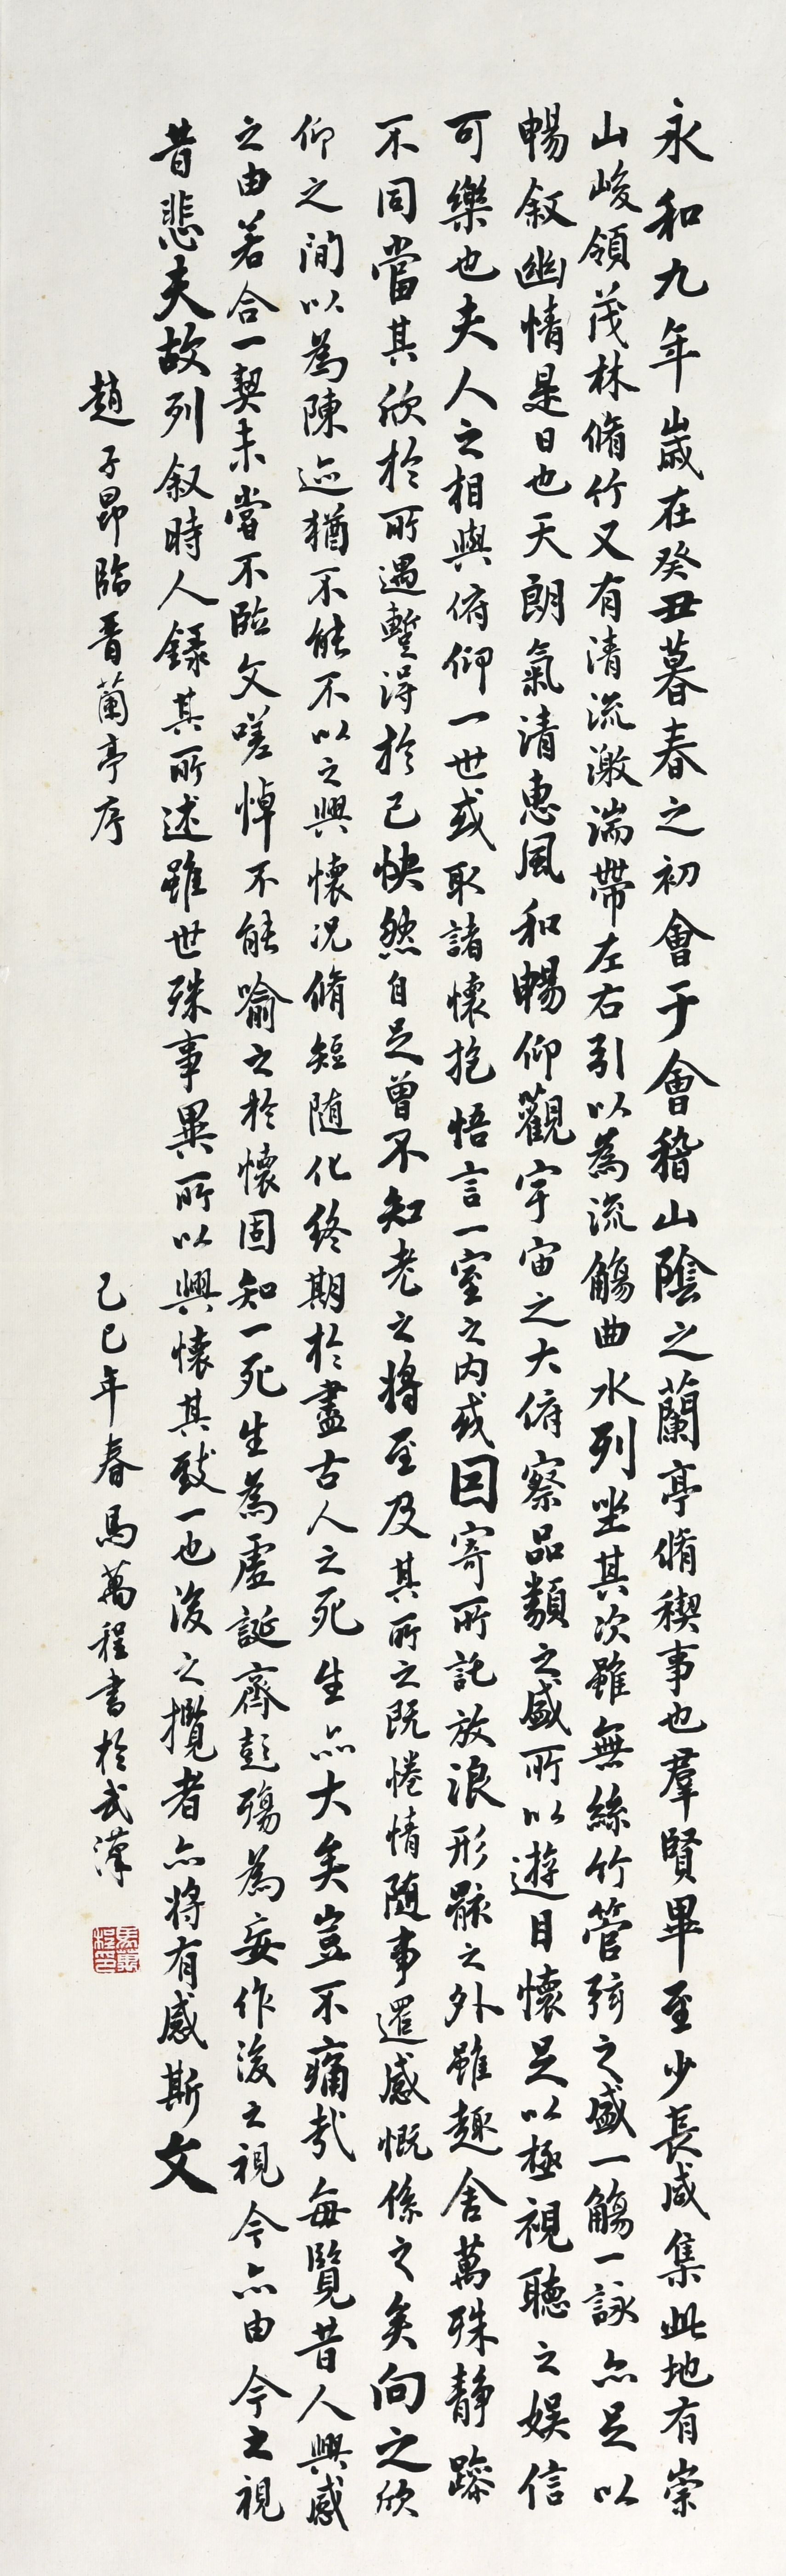 永和九年歲在癸丑暮春之初會于會稽山陰之蘭亭脩稧事也羣賢畢至少長咸集此地有崇
山峻領茂林脩竹又有清流激湍帶左右引以為流觴曲水列坐其次雖無絲竹管弦之盛一觴一詠亦足以
暢叙幽情是日也天朗氣清惠風和暢仰觀宇宙之大俯察品類之盛所以遊目懷足以極視聽之娛信
可樂也夫人之相與俯仰一世或取諸懷抱悟言一室之內或因寄所託放浪形骸之外雖趣舍萬殊静躁
不同當其欣於所遇蹔得於己怏然自足曾不知老之將至及其所之既惓情随事遷感慨係之矣向之欣
仰之間以為陳迹猶不能不以之興懷況脩短随化終期於盡古人云死生亦大矣豈不痛哉每覽昔人興感
之由若合一契未嘗不臨文嗟悼不能喻之於懷固知一死生為虛誕齊彭殤為妄作後之視今亦由今之視
昔悲夫故列叙時人錄其所述雖世殊事異所以興懷其致一也後之攬者亦將有感斯文
趙子昂臨晋蘭亭序 己巳年春馬萬程書於武漢
馬萬程印